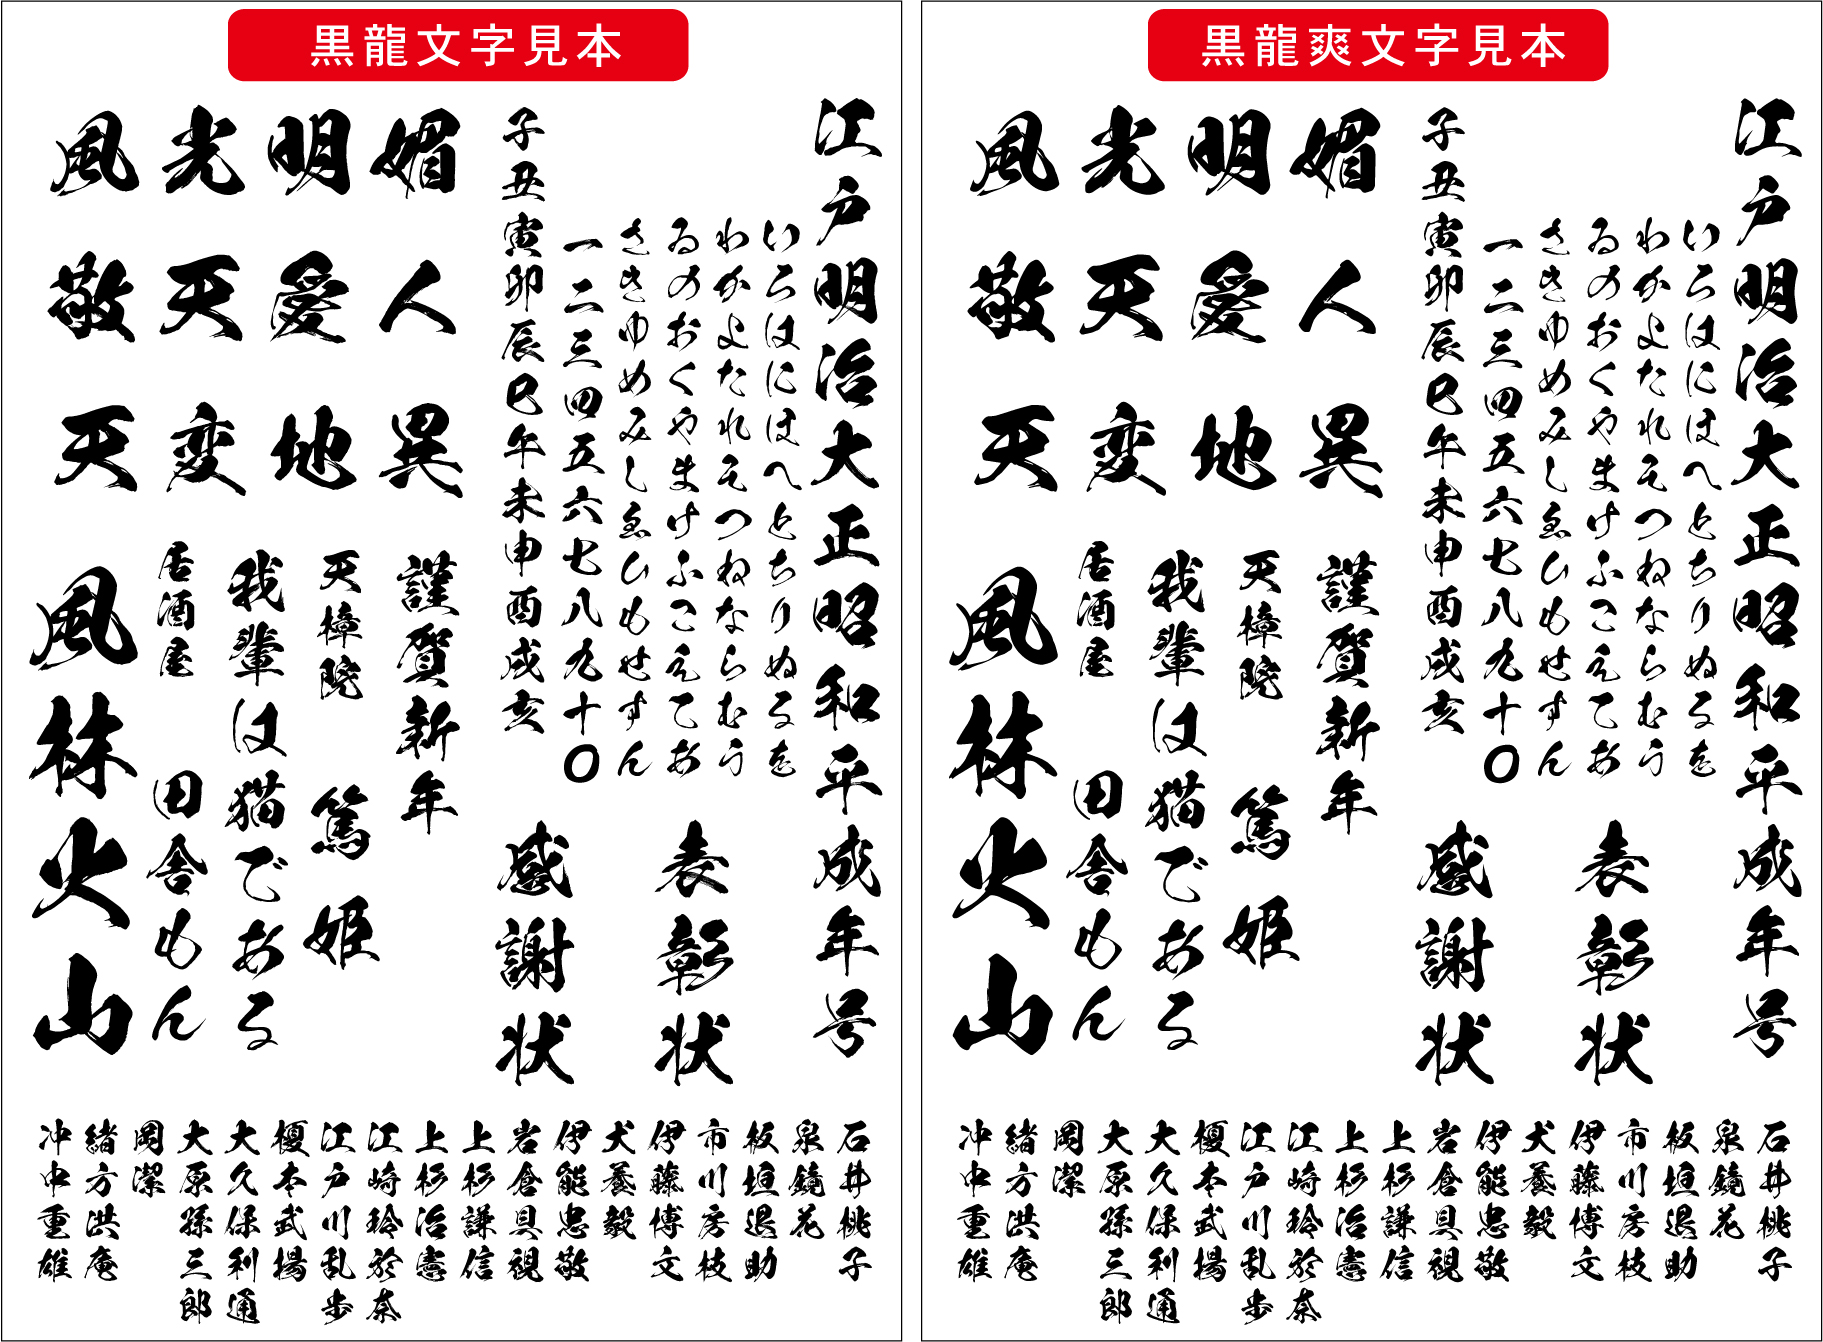 黒龍文字見本
江戸明治大正昭和平成年号
いろはにほへとちりぬるを
わかよたれそつねならむう
ゐのおくやまけふこえてあ
さきゆめみしゑひもせすん
一二三四五六七八九十〇
子丑寅卯辰巳午未申酉戌亥
表彰状
感謝状
風光明媚
敬天愛人
天変地異
謹賀新年
天樟院
篤姫
我輩は猫である
居酒屋
田舎もん
風林火山
石井桃子
泉鏡花
板垣退助
市川房枝
伊藤博文
犬養毅
伊能忠敬
岩倉具視
上杉謙信
上杉治憲
江崎玲於奈
江戸川乱歩
榎本武揚
大久保利通
大原孫三郎
岡潔
緒方洪庵
沖中重雄
黒龍爽文字見本
江戸明治大正昭和平成年号
いろはにほへとちりぬるを
わかよたれそつねならむう
ゐのおくやまけふこえてあ
さきゆめみしゑひもせすん
一二三四五六七八九十〇
子丑寅卯辰巳午未申酉戌亥
表彰状
感謝状
風光明媚
敬天愛人
天変地異
謹賀新年
天樟院
篤姫
我輩は猫である
居酒屋
田舎もん
風林火山
石井桃子
泉鏡花
板垣退助
市川房枝
伊藤博文
犬養毅
伊能忠敬
岩倉具視
上杉謙信
上杉治憲
江崎玲於奈
江戸川乱歩
榎本武揚
大久保利通
大原孫三郎
岡潔
緒方洪庵
沖中重雄